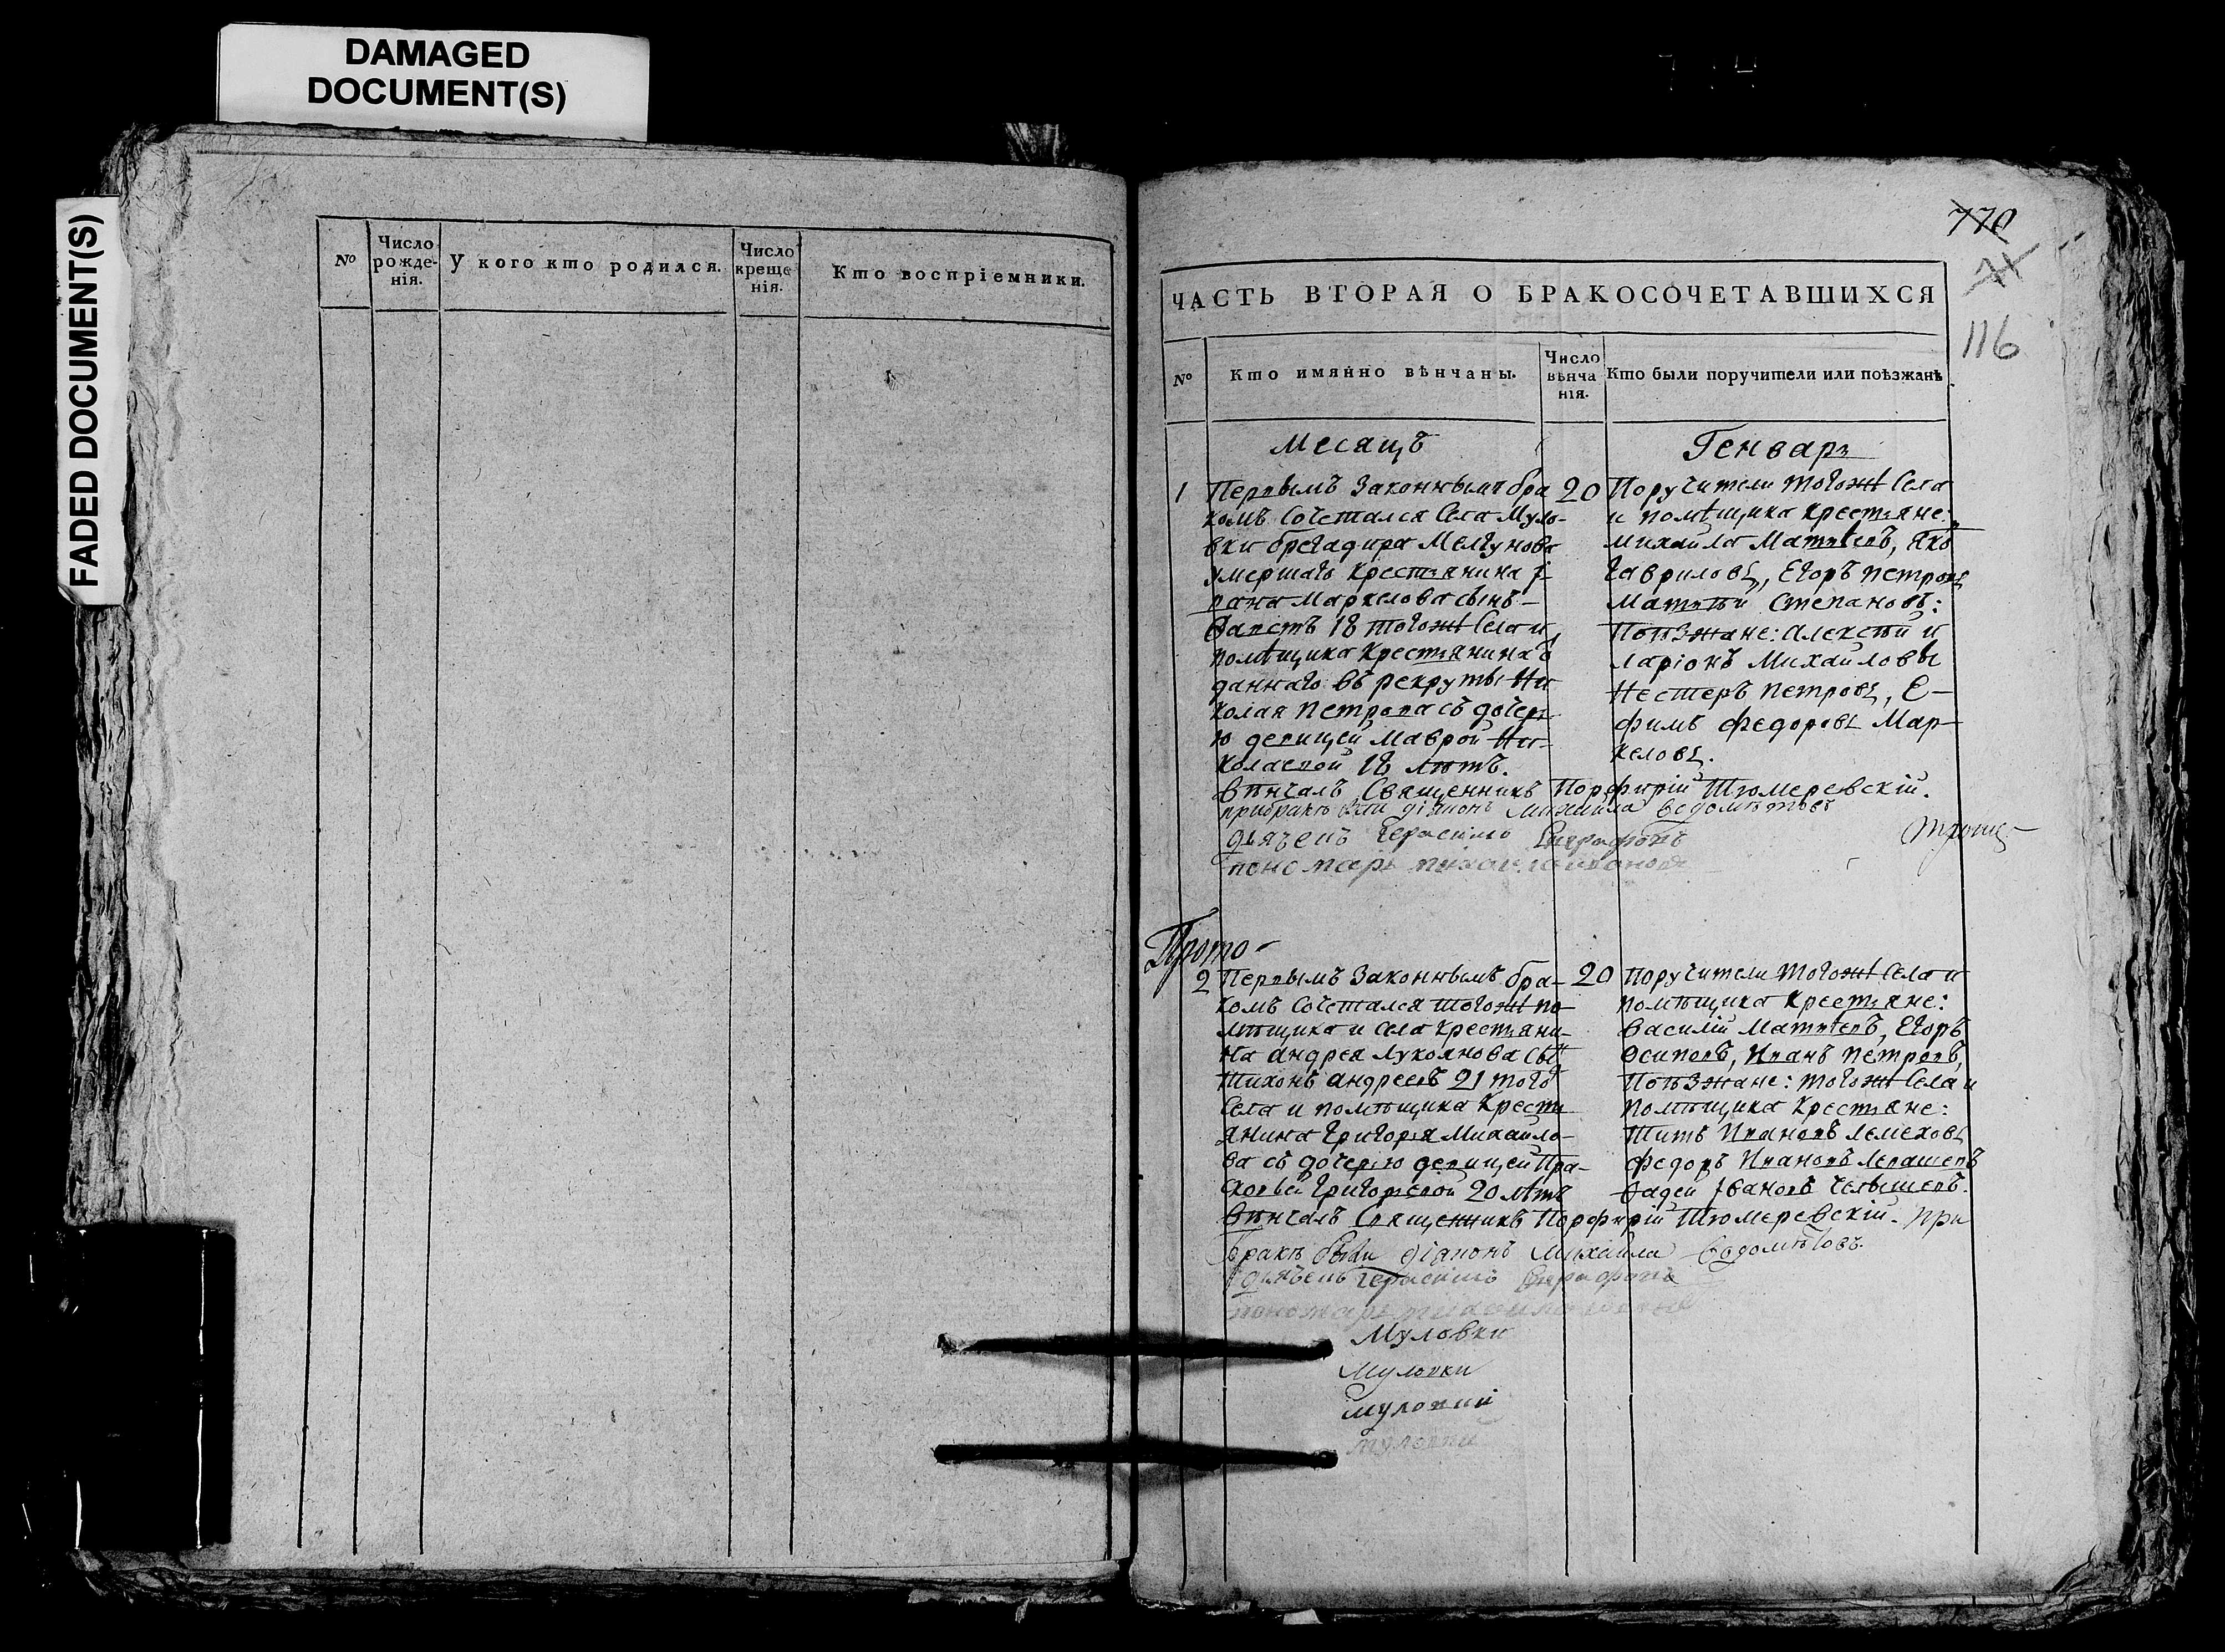 DAMAGED
DOCUMENT(S)
FADED DOCUMENT(S)
№
Число рожденія.
У кого кто родился.
Число крещенія.
Кто воспріемники.
770
71
116
ЧАСТЬ ВТОРАЯ О БРАКОСОЧЕТАВШИХСЯ
№
Кто имянно вѣнчаны.
Число вѣнча нія.
Кто были поручители или поѣзжанѣ
Месяцъ
Генварь
1
Первымъ Законнымъ бра
комъ Сочетался Села Муло-
вки брегадира Мелгунова
умершаго Крестьянина І-
вана Маркелова сынъ-
Ѳаѵстъ 18 тогожѣ Села и
помѣщика Крестьянина
даннаго въ рекруты Ни
колая Петрова съ дочерь
ю девицей Маврой Ни-
колаевой 18 лѣтъ.
20
Поручители тогожѣ Села
и помѣщика Крестьяне:
михаила Матвѣевъ, Яко
Гавриловъ, Егоръ Петровъ
Матвѣй Степановъ:
Поѣзжане: Алексѣй и
Ларіонъ Михайловы
Нестеръ Петровъ, Е-
фимъ Федоровъ Мар-
келовъ.
Вѣнчалъ Священникъ Порфирій Тюмеревскій.
при бракѣ были діаконъ Михаила
дьячекъ Герасимъ
пономарь михаила ивановъ
2
Первымъ Законнымъ бра-
комъ Сочетался тогожѣ по-
мѣщика и села Крестьяни-
на андрея Лукоянова сы
Тихонъ андреевъ 21 того
Села и помѣщика Крестьы
янина Григорья Михайло-
ва съ дочерью девицей Пра-
сковьей Григорьевой 20 лѣтъ
20
поручители тогожѣ Села и
помѣщика Крестьяне:
Василій Матвѣевъ, Егоръ
Осиповъ, Иванъ Петровъ,
Поѣзжане: тогожѣ Села и
помѣщика Крестьяне:
Титъ Ивановъ Лемеховъ
Федоръ Ивановъ Левашевъ
Ѳадей Івановъ Челышевъ.
Вѣнчалъ Священникъ Порфирій Тюмеревскій. при
бракѣ были діаконъ Михаила
дьячекъ Герасимъ
Муловки
Муловки
муловки
муловки